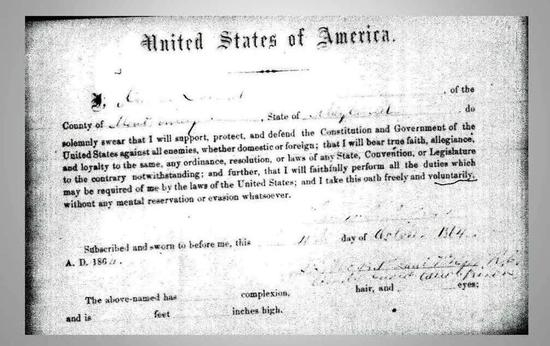 United States of America.
I, of the
County of Montgomery, State of Maryland do
solemnly swear that I will support, protect, and defend the Constitution and Government of the
United States against all enemies, whether domestic or foreign; that I will bear true faith, allegiance,
and loyalty to the same, any ordinance, resolution, or laws of any State, Convention, or Legislature
to the contrary notwithstanding; and further, that I will faithfully perform all the duties which
may be required of me by the laws of the United States; and I take this oath freely and voluntarily,
without any mental reservation or evasion whatsoever.
Subscribed and sworn to before me, this day of 1864
A. D. 186
The above-named has complexion, hair, and eyes;
and is feet inches high.